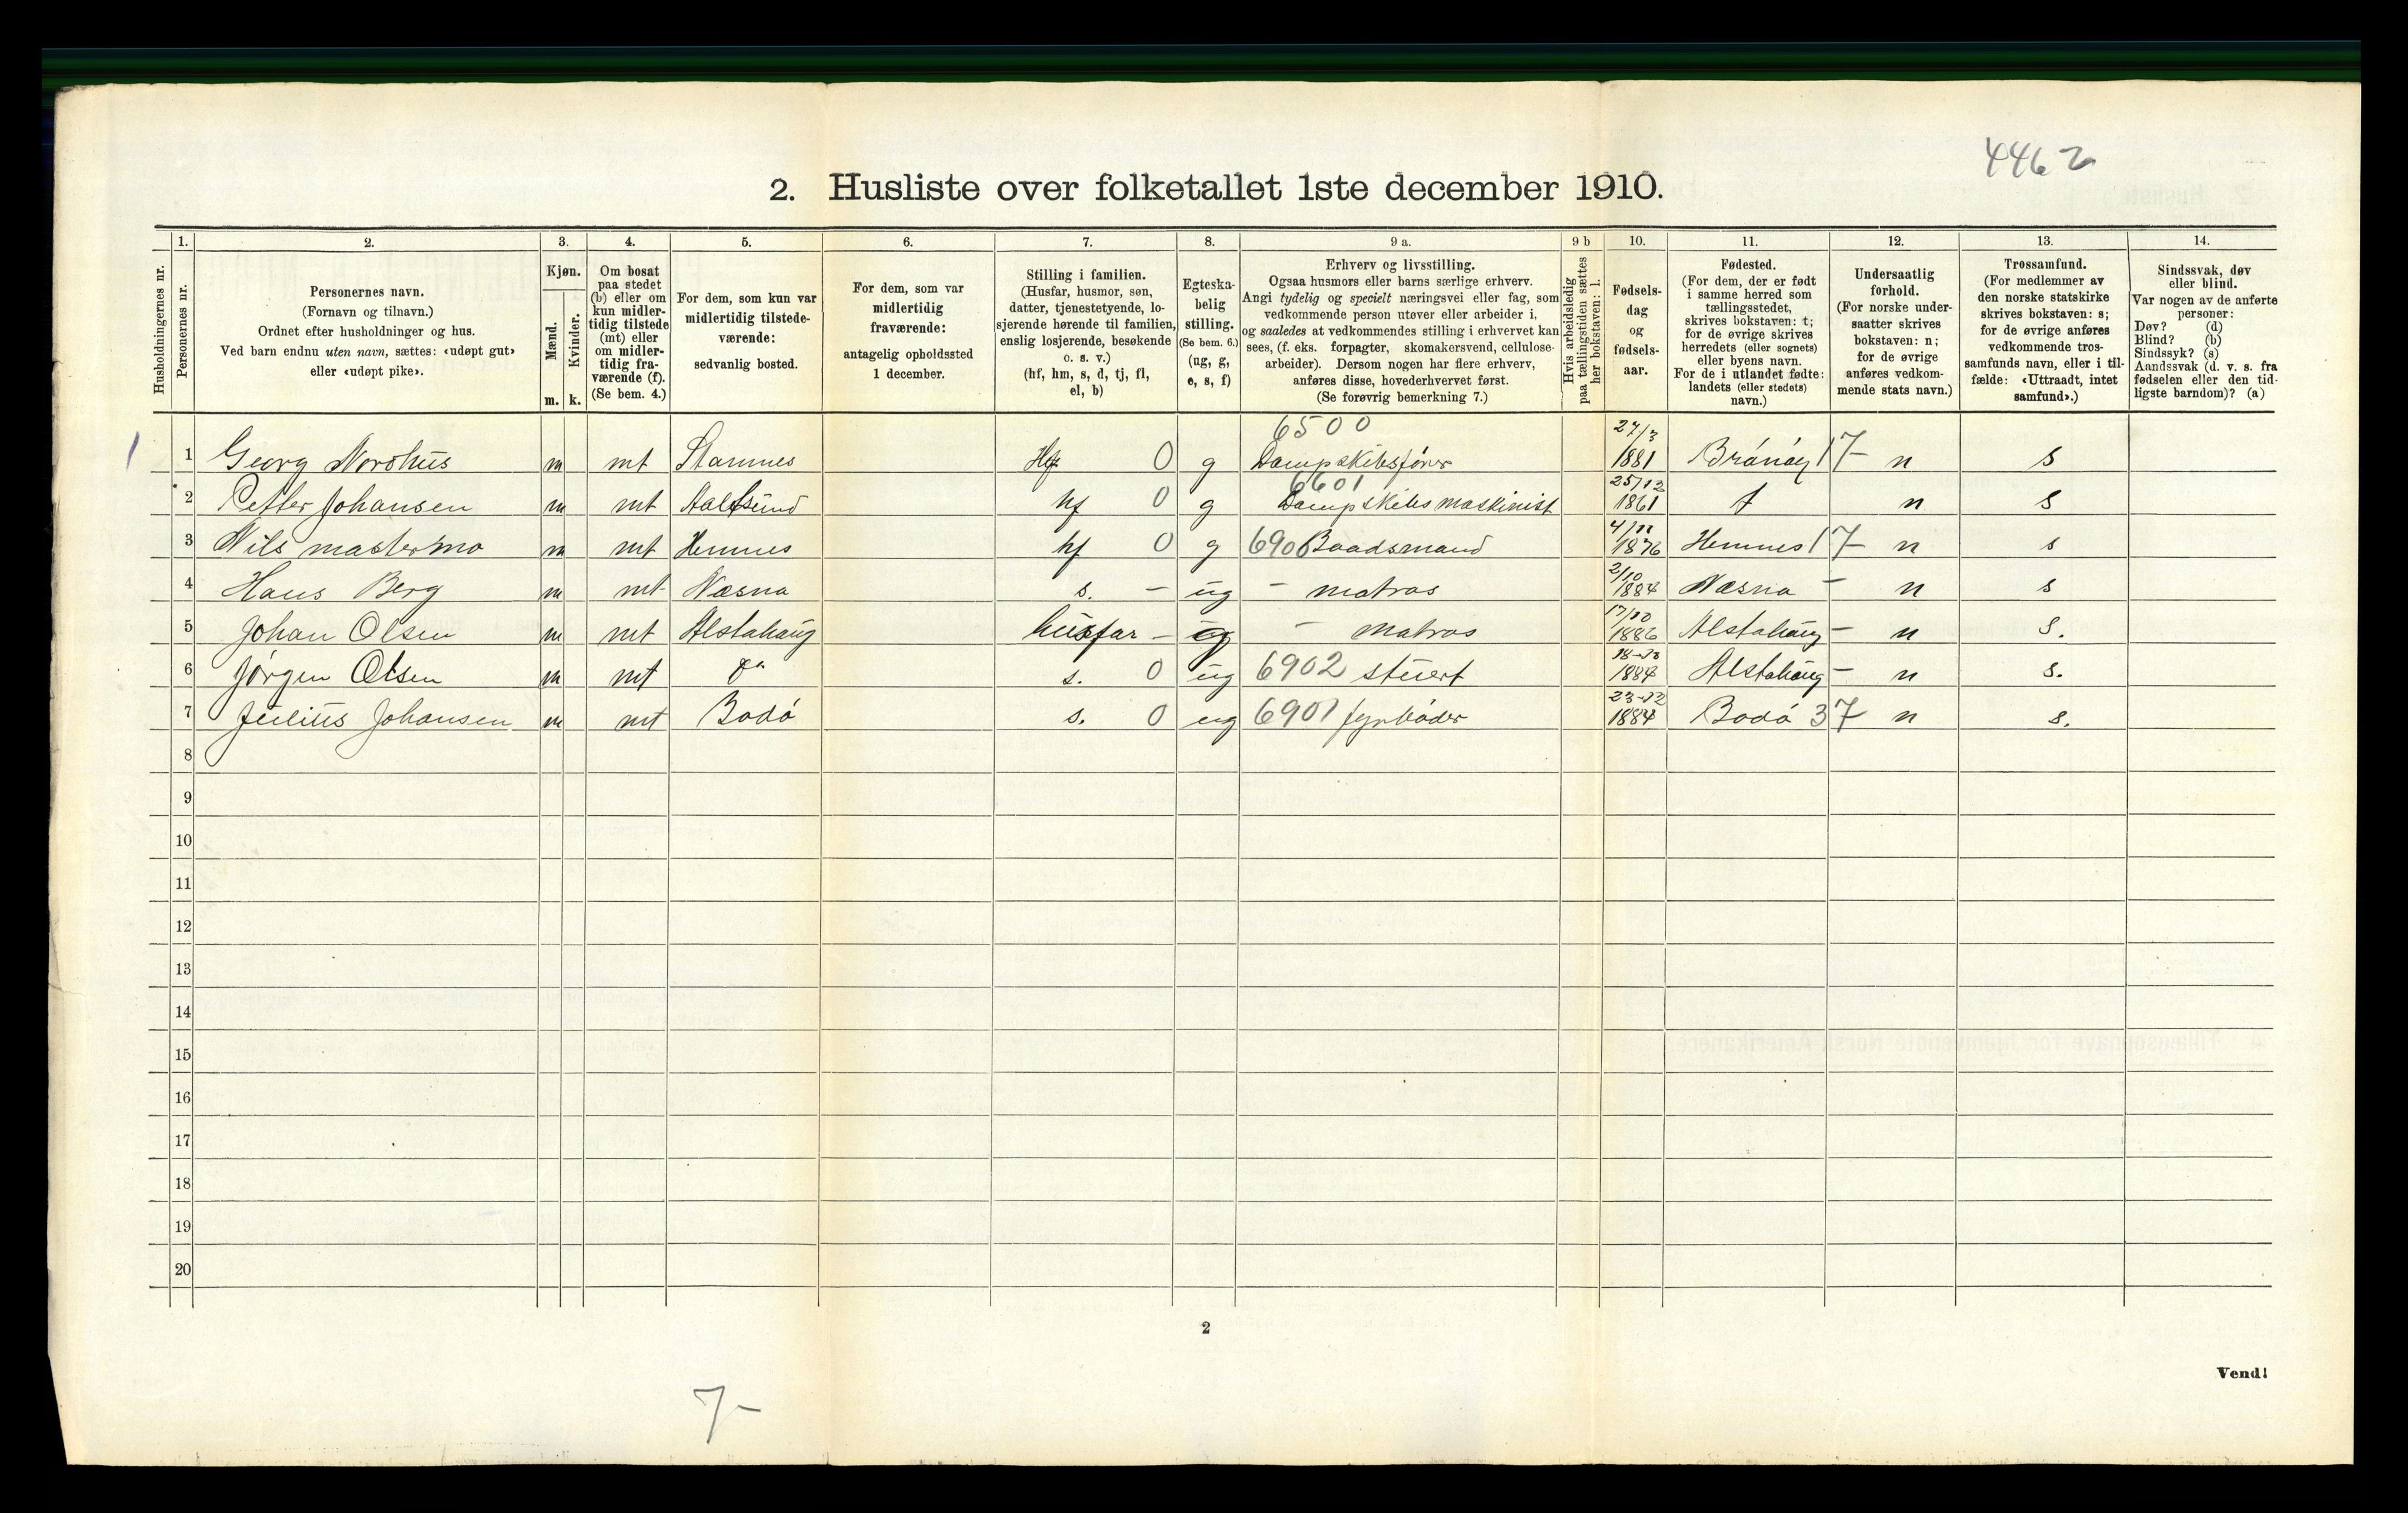 4462
2. Husliste over folketallet 1ste december 1910.
1. 2. 3. 4. 5. 6. 7. 8. 9 a. 9 b 10. 11. 12. 13. 14.
Husholdningernes nr.
Personernes nr.
Personernes navn.
(Fornavn og tilnavn.)
Ordnet efter husholdninger og hus.
Ved barn endnu uten navn, sættes: «udøpt gut»
eller «udøpt pike».
Kjøn.
Mænd.
Kvinder.
m. k.
Om bosat
paa stedet
(b) eller om
kun midler-
tidig tilstede
(mt) eller
om midler-
tidig fra-
værende (f).
(Se bem. 4.)
For dem, som kun var
midlertidig tilstede-
værende:
sedvanlig bosted.
For dem, som var
midlertidig
fraværende:
antagelig opholdssted
1 december.
Stilling i familien.
(Husfar, husmor, søn,
datter, tjenestetyende, lo-
sjerende hørende til familien,
enslig losjerende, besøkende
o. s. v.)
(hf, hm, s, d, tj, fl,
el, b)
Egteska-
belig
stilling.
(Se bem. 6.)
(ug, g,
e, s, f)
Erhverv og livsstilling.
Ogsaa husmors eller barns særlige erhverv.
Angi tydelig og specielt næringsvei eller fag, som
vedkommende person utøver eller arbeider i,
og saaledes at vedkommendes stilling i erhvervet kan
sees, (f. eks. forpagter, skomakersvend, cellulose-
arbeider). Dersom nogen har flere erhverv,
anføres disse, hovederhvervet først.
(Se forøvrig bemerkning 7.)
Hvis arbeidsledig
paa tællingstiden sættes
her bokstaven: l.
Fødsels-
dag
og
fødsels-
aar.
Fødested.
(For dem, der er født
i samme herred som
tællingsstedet,
skrives bokstaven: t;
for de øvrige skrives
herredets (eller sognets)
eller byens navn.
For de i utlandet fødte:
landets (eller stedets)
navn.)
Undersaatlig
forhold.
(For norske under-
saatter skrives
bokstaven: n;
for de øvrige
anføres vedkom-
mende stats navn.)
Trossamfund.
(For medlemmer av
den norske statskirke
skrives bokstaven: s;
for de øvrige anføres
vedkommende tros-
samfunds navn, eller i til-
fælde: «Uttraadt, intet
samfund».)
Sindssvak, døv
eller blind.
Var nogen av de anførte
personer:
Døv? (d)
Blind? (b)
Sindssyk? (s)
Aandssvak (d. v. s. fra
fødselen eller den tid-
ligste barndom)? (a)
6500 27/3
1 Georg Norshus m mt Stamnes Hf 0 g Dampskibsfører 1881 Brönöy 17 n s
6601 25/12
2 Petter Johansen m mt Aalesund hf 0 g Dampskibs maskinist 1861 t n s
3 Nils mastermo m mt Hemnes hf 0 g 6900 Baadsmand 4/11 1876 Hemnes 17 n s
4 Hans Berg m mt Næsna s. – ug – matros 2/10 1884 Næsna – n s
5 Johan Olsen m mt Alstahaug husfar – g – matros 17/10 1886 Alstahaug – n s.
6 Jørgen Olsen m mt do s. 0 ug 6902 stuert 1884 Alstahaug – n s.
7 Julius Johansen m mt Bodó s. 0 ug 6901 fyrbóder 23-12 1884 Bodó 37 n s.
8
9
10
11
12
13
14
15
16
17
18
19
20
2
Vend!
7–